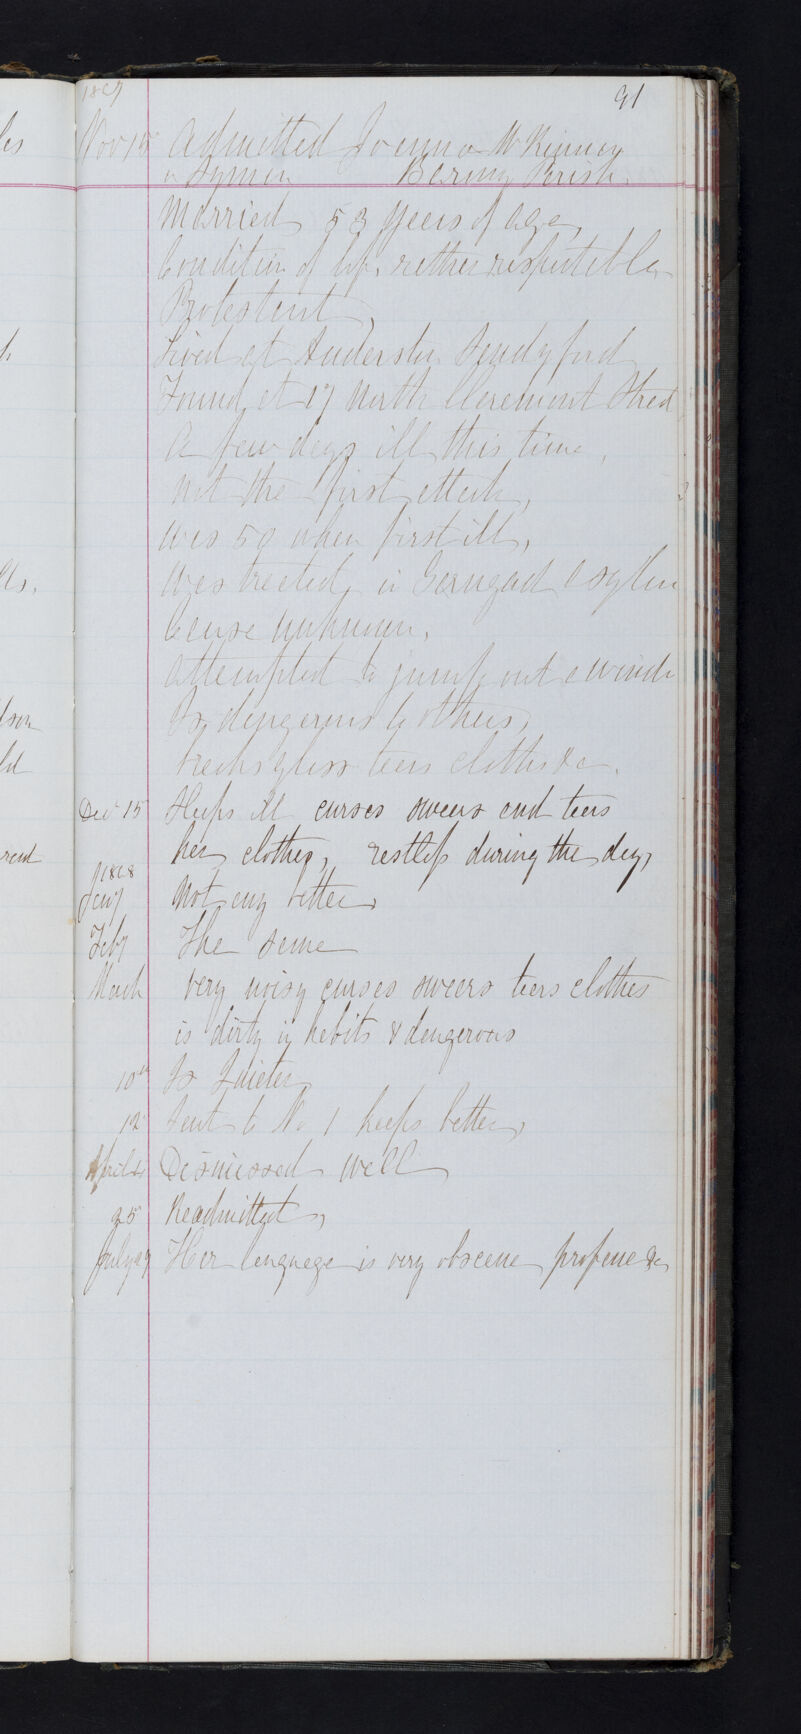 1867
91
Nov 15 Admitted Joanna McKinney
or Symon Barony Parish
Married 53 Years of age,
Condition of life, rather respectable
Protestant,
Lived at Anderston Sandyford
Found at 17 North Claremont Street
A few days ill this time,
Not the first attack,
Was 50 when first ill,
Was treated in Garngad Asylum
Cause unknown,
Attempted to jump out a windo
Is dangerous to others,
breaks glass tears clothes &c.
Dec 15 Sleeps ill curses swears and tears
her clothes, restless during the day,
1868
Jany Not any better,
Feby The same
March Very noisy curses swears tears clothes
is dirty in habits & dangerous
10th Is Quieter
12 Sent to No 1 keeps better,
April 4 Dismissed Well
25 Readmitted,
July 27 Her language is very obscene profane &c